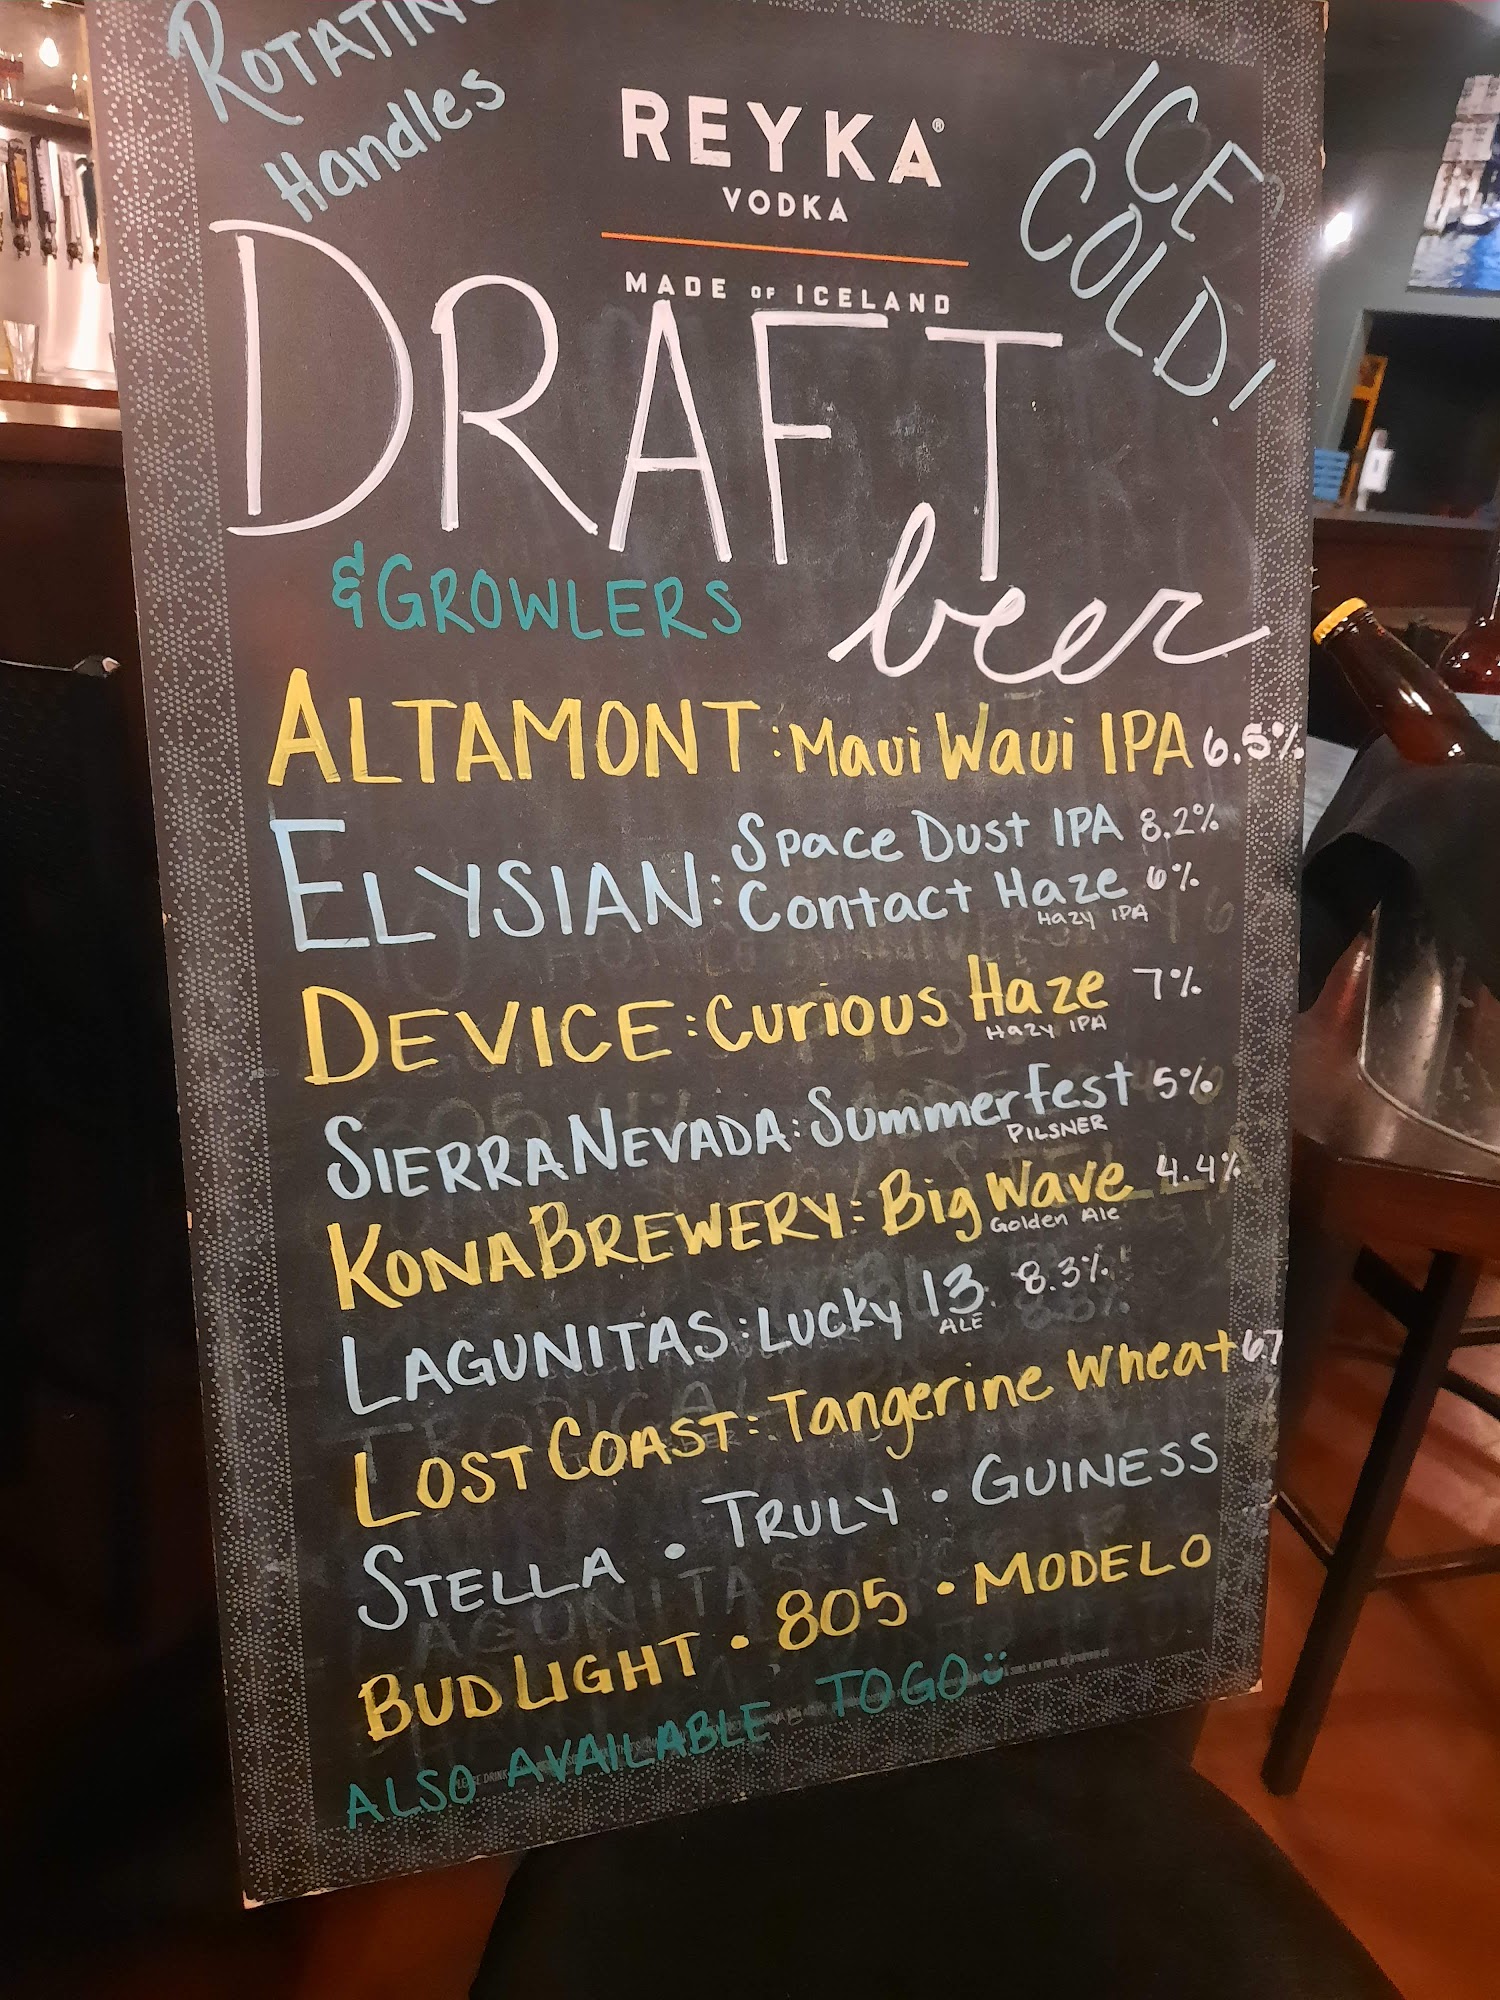 ROTATIN
Handles
REYKA®
VODKA
MADE OF ICELAND
ICE
COLD!
DRAFT
beer
& GROWLERS
ALTAMONT: Maui Waui IPA 6.5%
ELYSIAN: Space Dust IPA 8.2%
Contact Haze 6%
Hazy IPA
DEVICE: Curious Haze 7%
Hazy IPA
SIERRA NEVADA: Summerfest 5%
PILSNER
KONA BREWERY: Big Wave 4.4%
Golden Ale
LAGUNITAS: Lucky 13 8.3%
ALE
LOST COAST: Tangerine Wheat
STELLA • TRULY • GUINESS
BUD LIGHT • 805 • MODELO
ALSO AVAILABLE TO GO